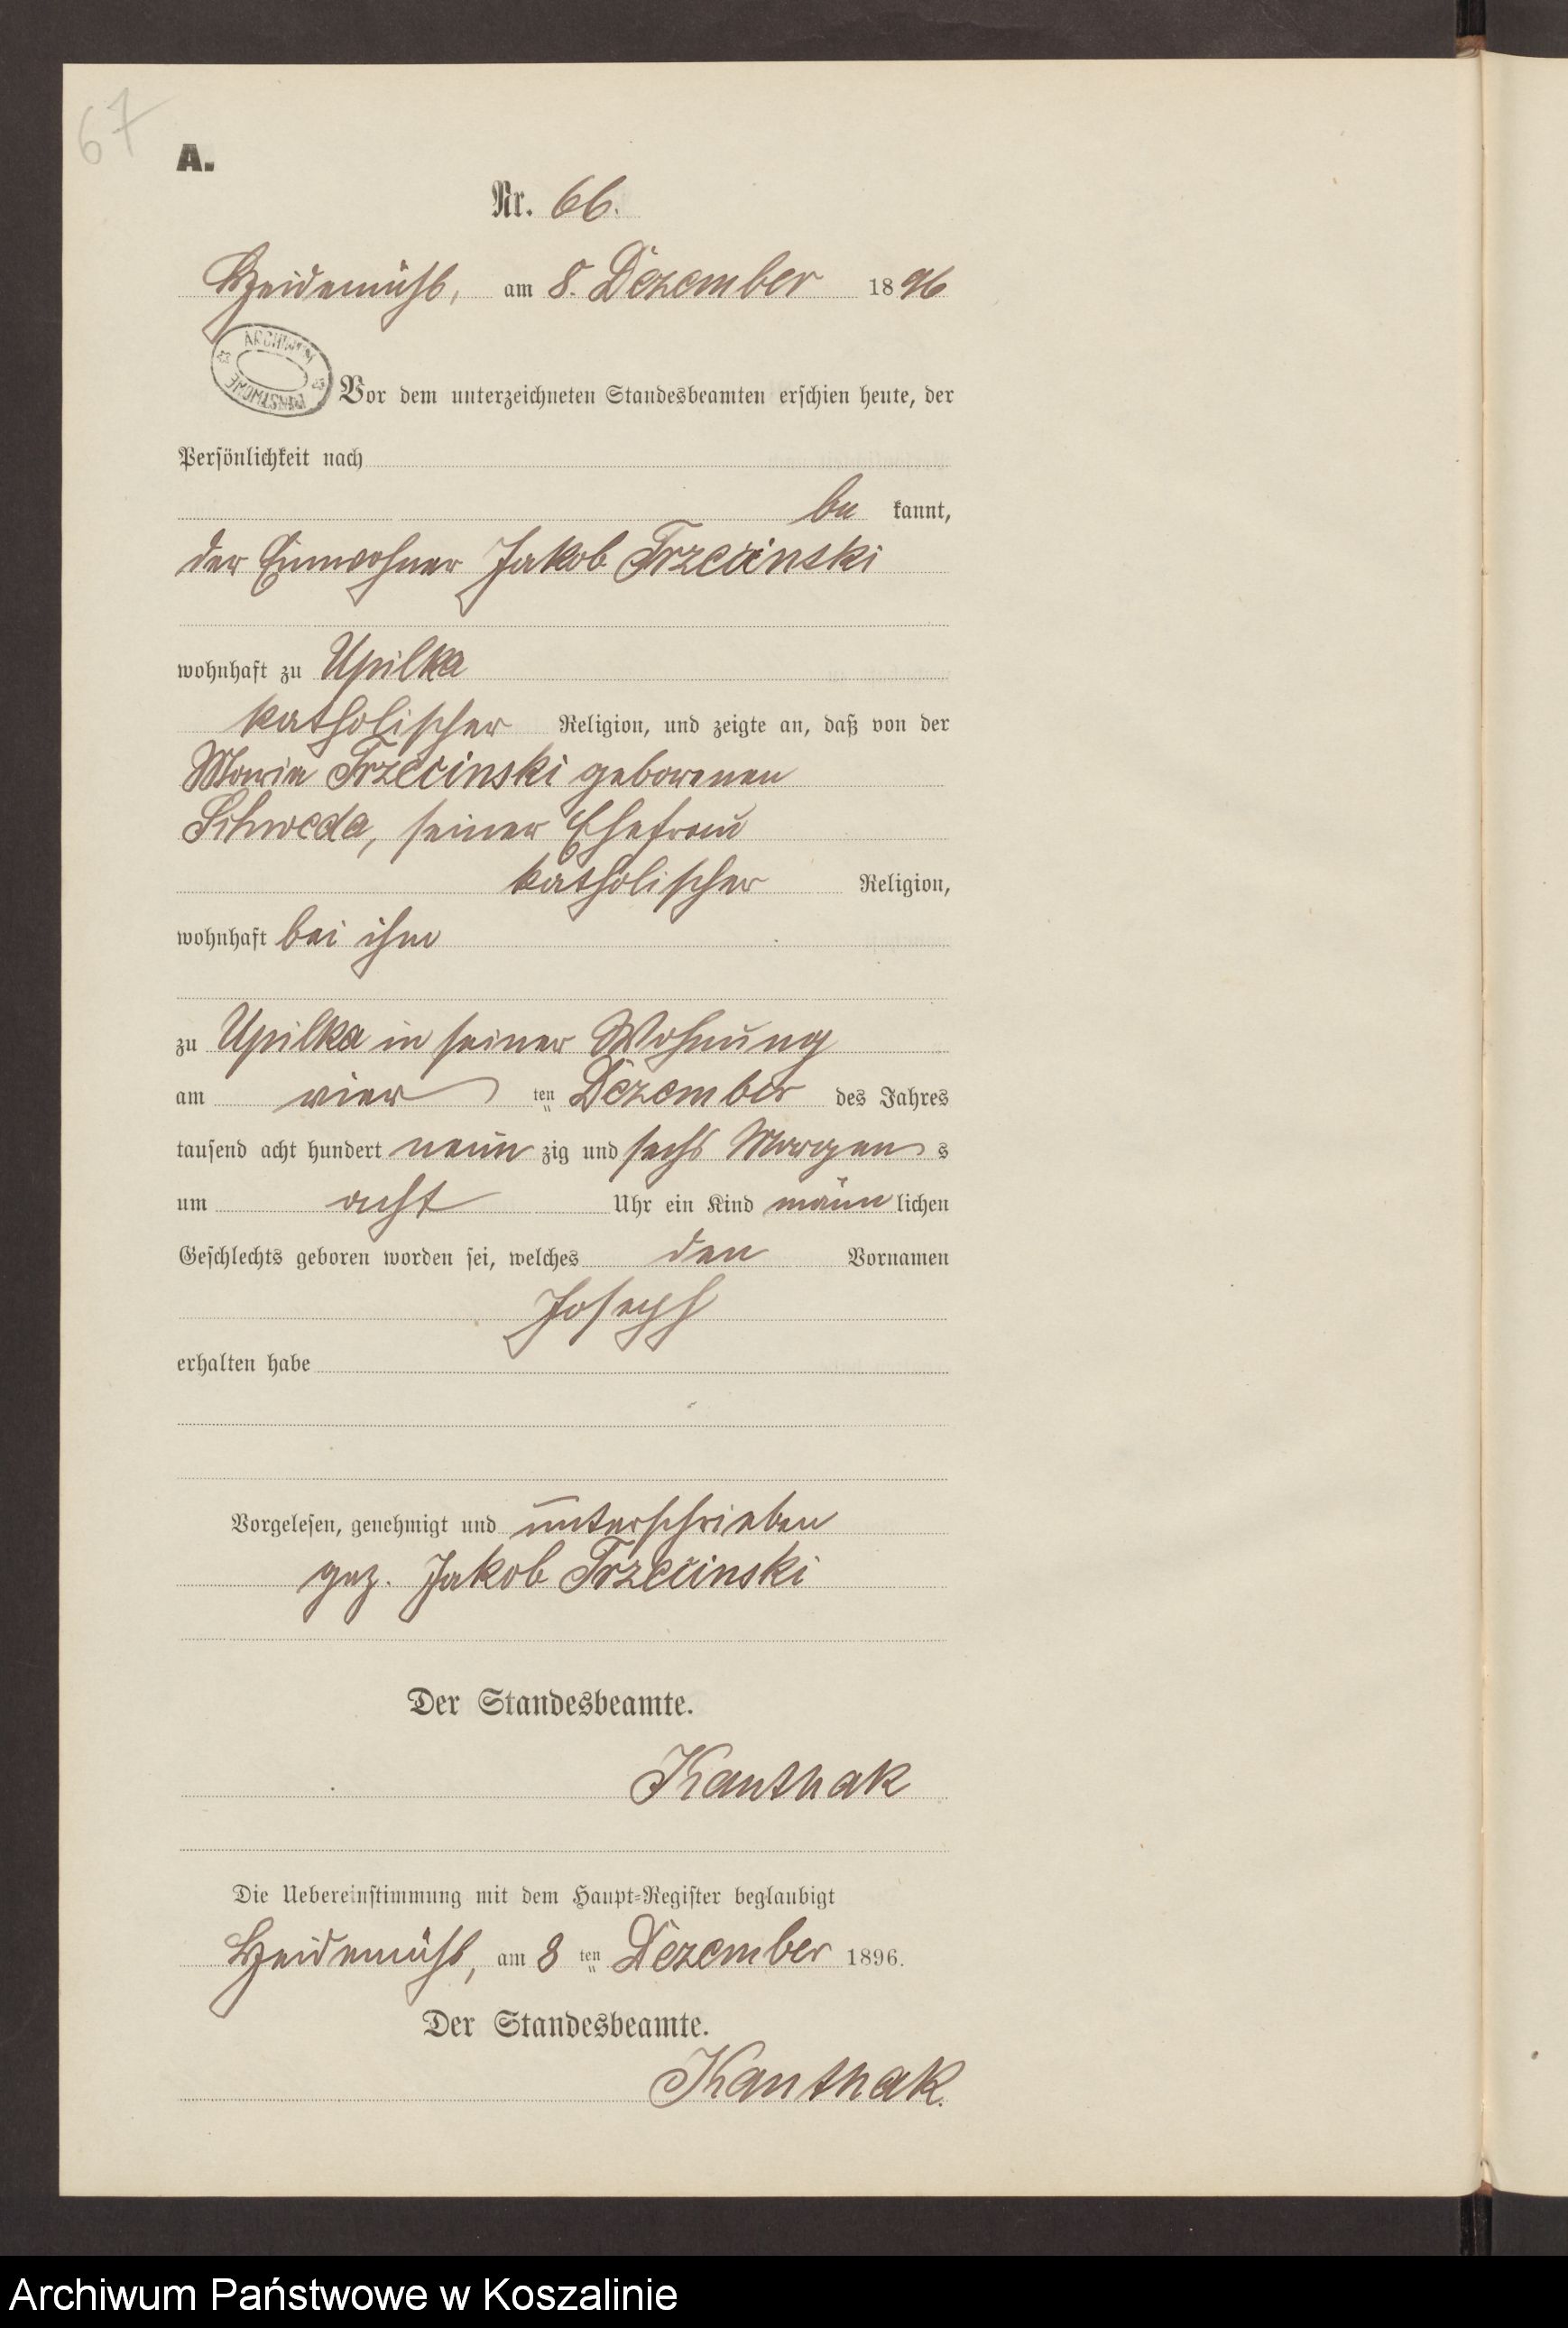 67
A.
Nr. 66.
Heidemühl, am 8. Dezember 1896
ARCHIWUM PAŃSTWOWE
Vor dem unterzeichneten Standesbeamten erschien heute, der
Persönlichkeit nach
be kannt,
der Einwohner Jakob Trzecinski
wohnhaft zu Upilka
katholischer Religion, und zeigte an, daß von der
Maria Trzecinski geborenen
Schweda, seiner Ehefrau
katholischer Religion,
wohnhaft bei ihm
zu Upilka in seiner Wohnung
am vier ten Dezember des Jahres
tausend acht hundert neun zig und sechs Morgens
um acht Uhr ein Kind männlichen
Geschlechts geboren worden sei, welches den Vornamen
Joseph
erhalten habe
Vorgelesen, genehmigt und unterschrieben
gez. Jakob Trzecinski
Der Standesbeamte.
Kanthak
Die Uebereinstimmung mit dem Haupt-Register beglaubigt
Heidemühl, am 8 ten Dezember 1896.
Der Standesbeamte.
Kanthak.
Archiwum Państwowe w Koszalinie